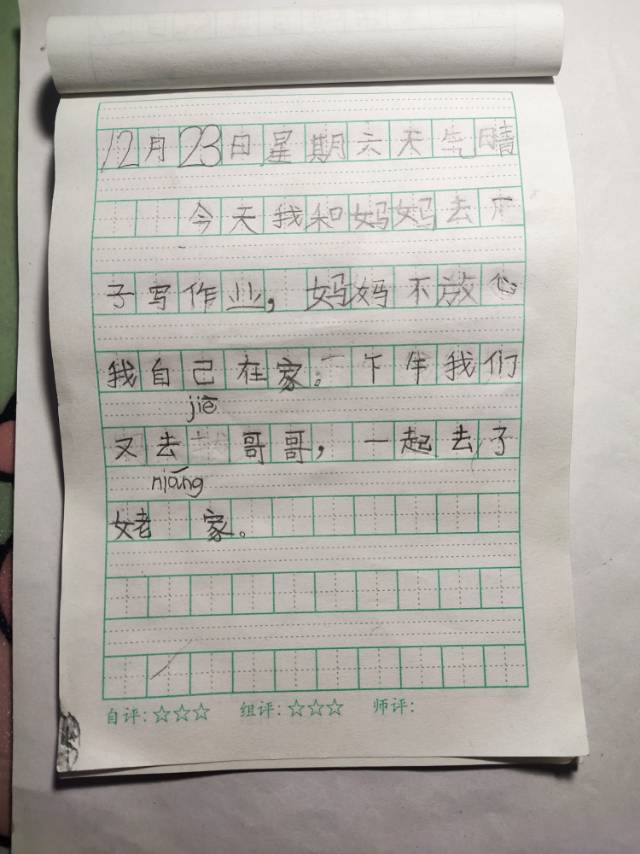 12月23日星期六天气晴
今天我和妈妈去
子写作业，妈妈不放心
我自己在家。下午我们
jiē
又去 哥哥，一起去子
niáng
姥 家。
自评：☆☆☆ 组评：☆☆☆ 师评：